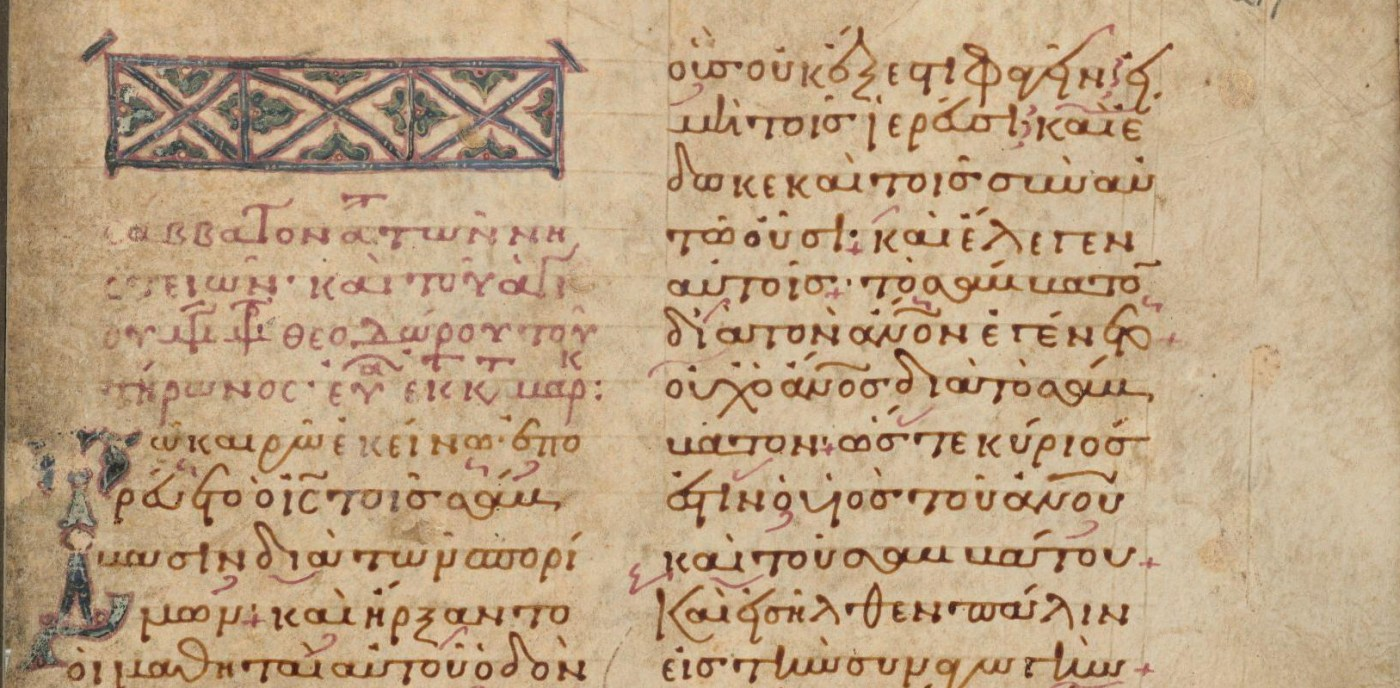 σαββατον α τῶν νη
στειῶν· καὶ τοῦ ἁγί
ου μρ θεοδώρου τοῦ
τήρωνος· εὐα ἐκ τ κ μαρ:
Τῶ καιρῶ ἐκείνω· ἐπο
ρεύετο ὁ ις τοῖς σάβ
βασιν διὰ τῶν σπορί
μων· καὶ ἤρξαντο
οἱ μαθηταὶ αὐτοῦ ὁδὸν
οὓς οὐκ ἔξεστι φαγεῖν εἰ
μὴ τοῖς ἱερεῦσι· καὶ ἔ
δωκε καὶ τοῖς σὺν αὐ
τῶ οὖσι· καὶ ἔλεγεν
αὐτοῖς· τὸ σάββατον
διὰ τὸν ανον ἐγένετο
οὐχ ὁ ανος διὰ τὸ σάβ
βατον· ὥστε κύριός
ἐστιν ὁ υἱὸς τοῦ ανου
καὶ τοῦ σαββάτου
Καὶ εἰσῆλθεν πάλιν
εἰς τὴν συναγωγὴν